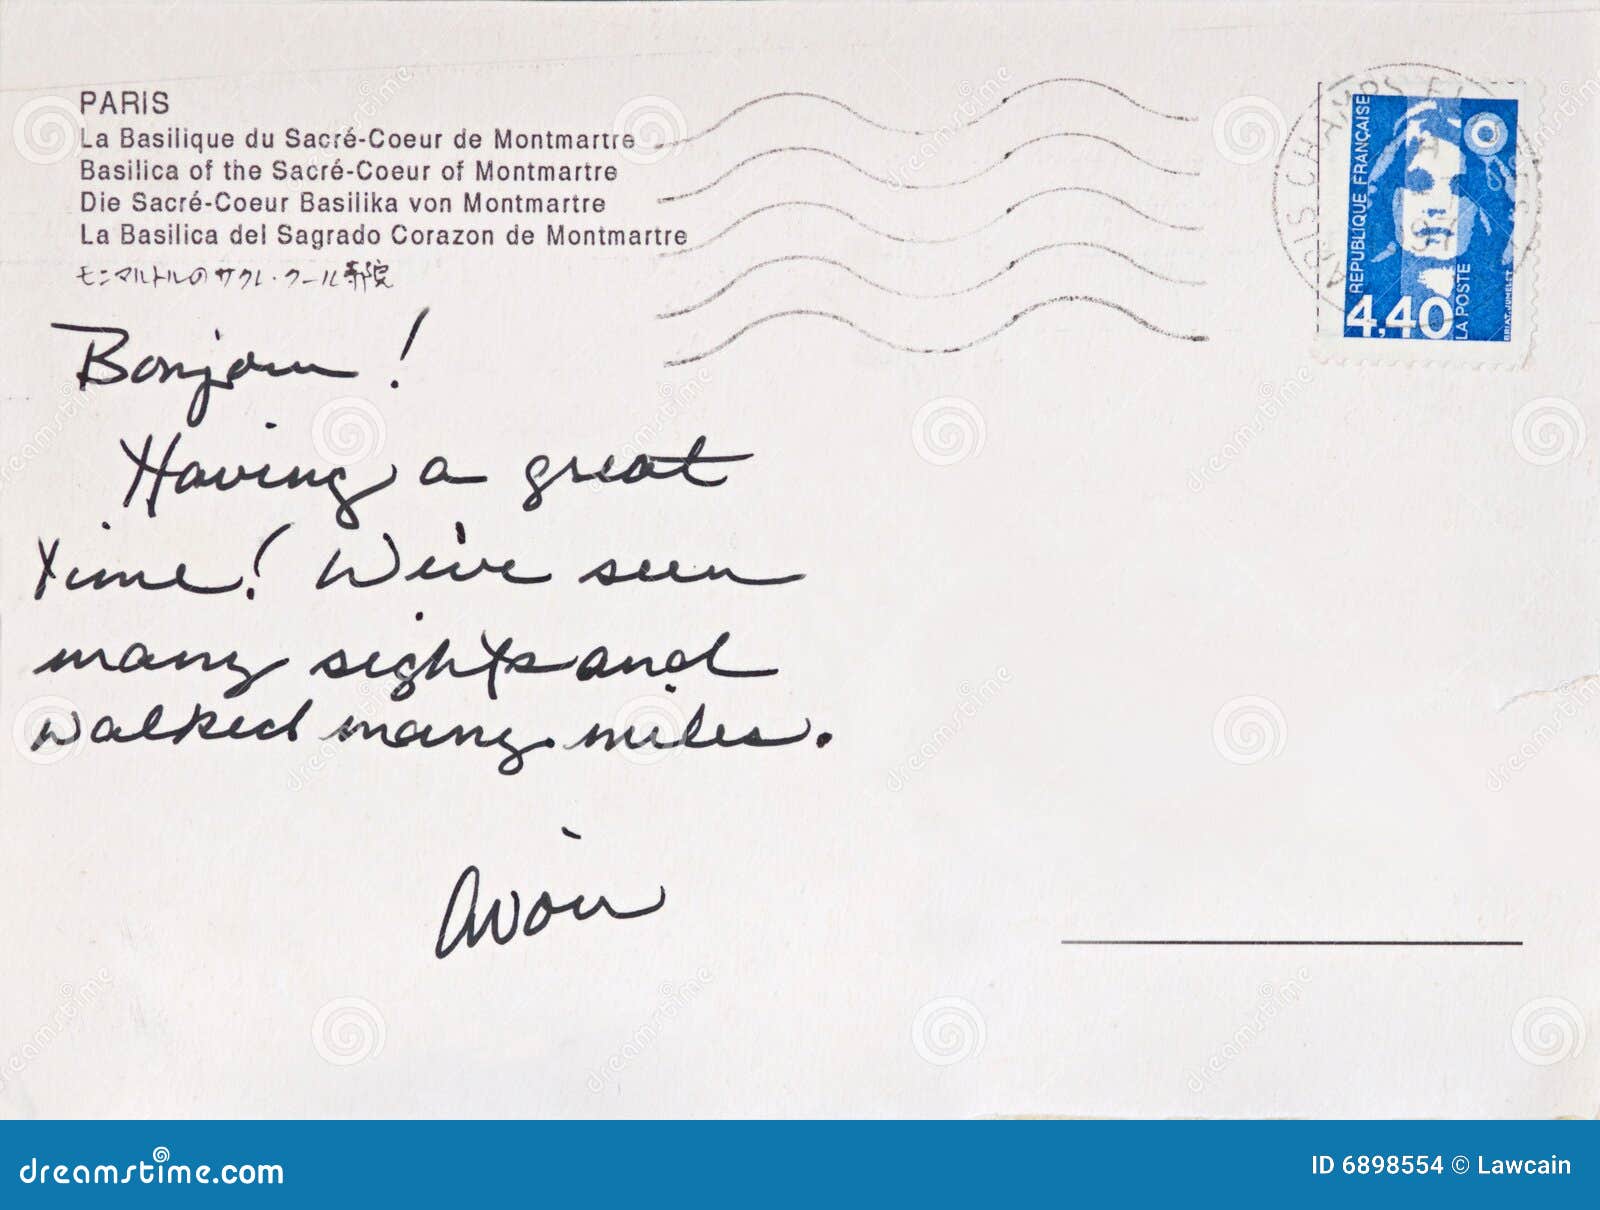 PARIS
La Basilique du Sacré-Coeur de Montmartre
Basilica of the Sacré-Coeur of Montmartre
Die Sacré-Coeur Basilika von Montmartre
La Basilica del Sagrado Corazon de Montmartre
モンマルトルのサクレ・クール寺院
Bonjour!
Having a great
time! We've seen
many sights and
walked many miles.
Avoir
PARIS CHAMPS EL
RÉPUBLIQUE FRANÇAISE
4,40
LA POSTE
BRIAT.JUMELET
dreamstime.com
ID 6898554 © Lawcain